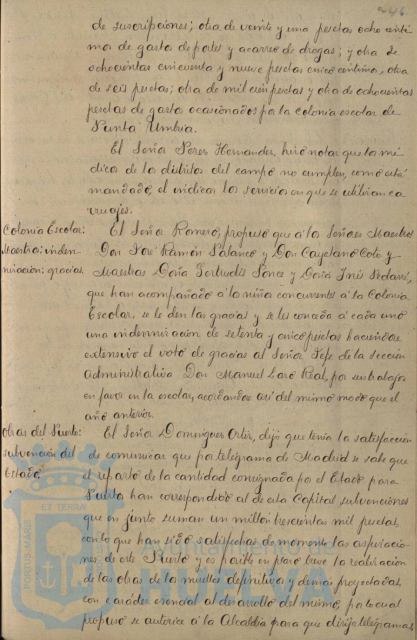 246
de suscripciones; otra de veinte y una pesetas ocho centi-
mos de gastos de portes y acarreo de drogas; y otra de
ochocientas cincuenta y nueve pesetas cinco centimos, otra
de seis pesetas; otra de mil cien pesetas y otra de ochocientas
pesetas de gastos ocasionados pa la colonia escolar de
Punta Umbria.
El Señor Perez Hernandez, hizo notar que los mé-
dicos de los distritos del campo no cumplen, como está
mandado, el indicar los servicios en que se utilizan ca
rruajes.
Colonia Escolar:
Maestros: indem-
nización: gracias.
El Señor Romero, propuso que á los Señores Maestros
Don José Ramón Palanco y Don Cayetano Coto y
Maestras Doña Gertrudis Ponce y Doña Inés
que han acompañado á los niños concurrentes á la Colonia
Escolar, se le den las gracias y se les conceda á cada uno
una indemnización de setenta y cinco pesetas haciendose
extensivo el voto de gracias al Señor Jefe de la Sección
administrativa Don Manuel Real, por sus trabajos
en favor en la escolar, acordandose así del mismo modo que el
año anterior.
Obras del Puerto:
subvención del
Estado.
El Señor Dominguez Ortiz, dijo que tenia la satisfacción
de comunicar que por telegrama de Madrid se sabe que
el reparto de la cantidad consignada por el Estado para
Puertos han correspondido al de esta Capital subvenciones
que en junto suman un millon trescientas mil pesetas,
con lo que han sido satisfechas de momento las aspiracio-
nes de este Puerto y es posible en plazo breve la realización
de las obras de los muelles definitivos y demás proyectadas,
con caracter esencial al desarrollo del mismo, por lo cual
propuso se autorice á la Alcaldía para que dirija telegramas
Ayuntamiento de
HUELVA
PORTUS MARIS
ET TERRAE